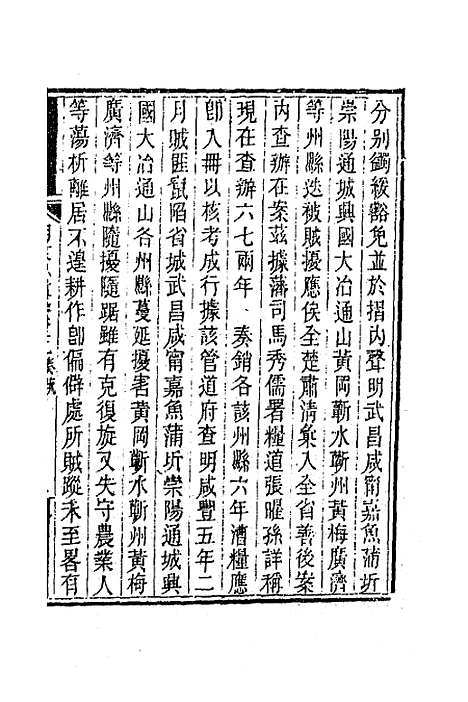 分别蠲緩豁免並於摺內聲明武昌咸甯嘉魚蒲圻
崇陽通城興國大冶通山黃岡蘄水蘄州黃梅廣濟
等州縣迭被賊擾應俟全楚肅清彙入全省善後案
內查辦在案茲據藩司馬秀儒署糧道張曜孫詳稱
現在查辦六七兩年奏銷各該州縣六年漕糧應
卽入冊以核考成行據該管道府查明咸豐五年二
月賊匪竄陷省城武昌咸甯嘉魚蒲圻崇陽通城興
國大冶通山各州縣蔓延擾害黃岡蘄水蘄州黃梅
廣濟等州縣隨擾隨踞雖有克復旋又失守農業人
等蕩析離居不遑耕作卽偏僻處所賊蹤未至畧有